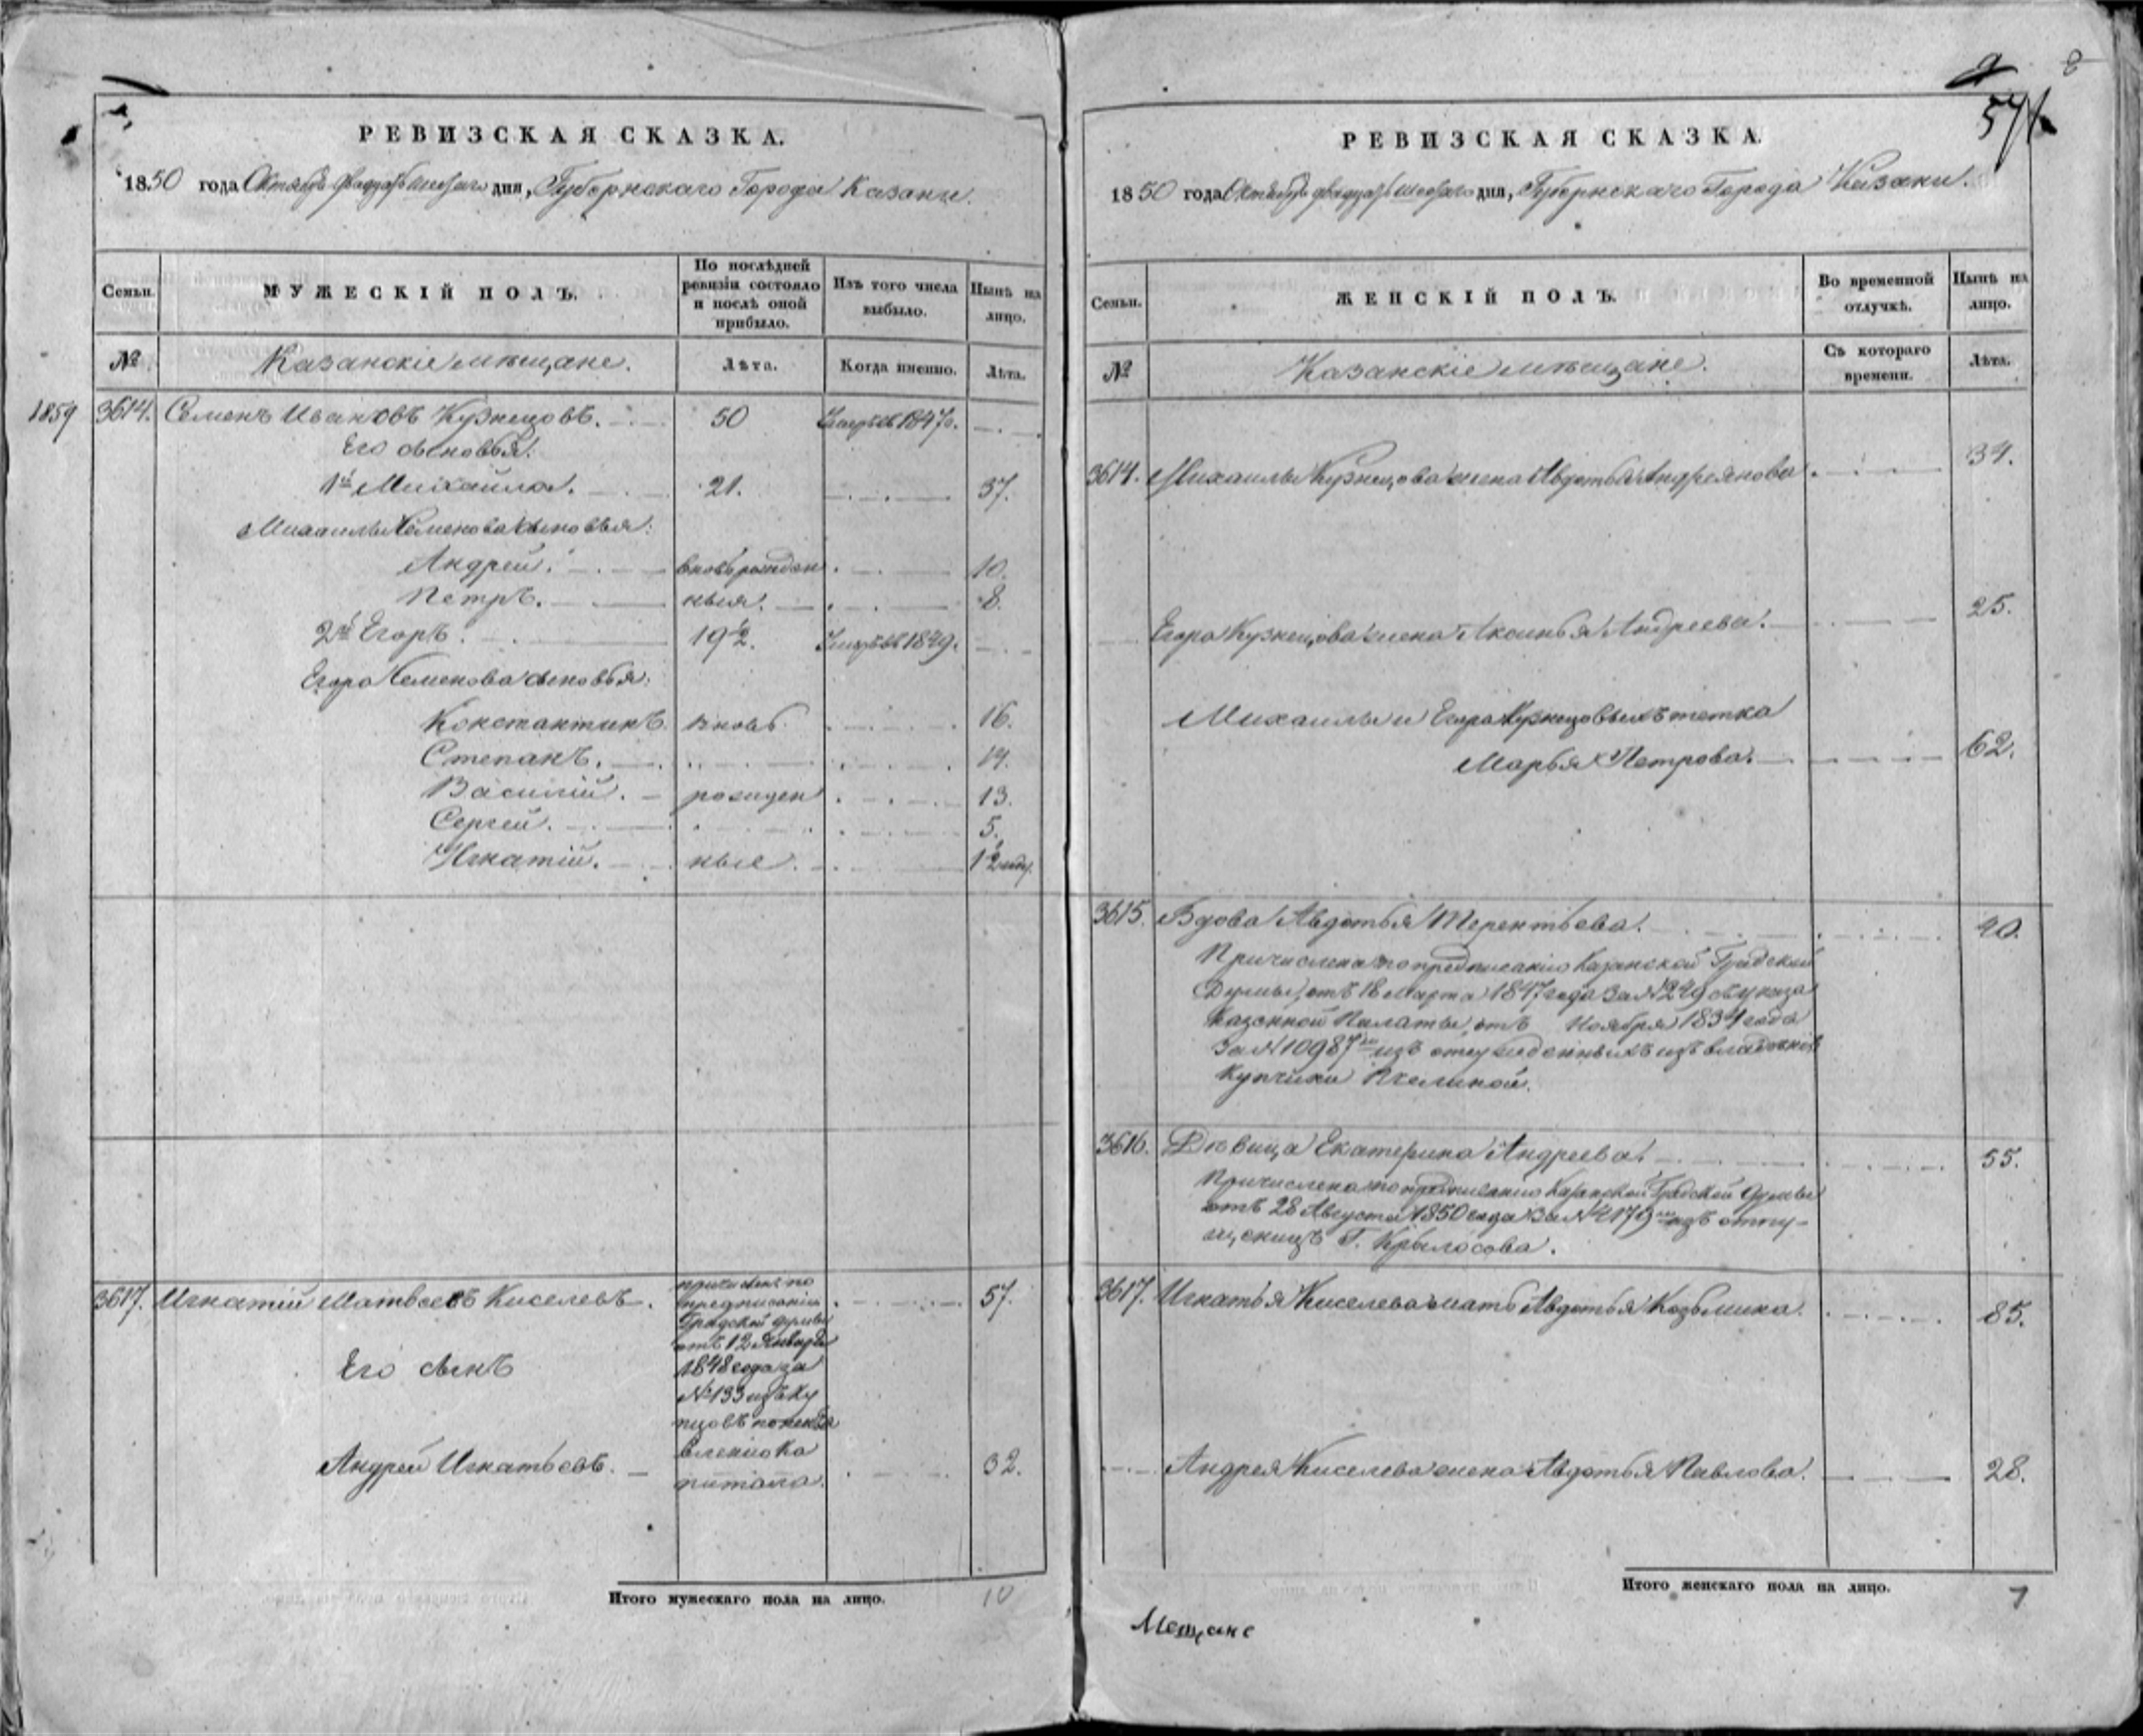 РЕВИЗСКАЯ СКАЗКА.
1850 года Октября двадцать шестаго дня, Губернскаго Города Казани.
Семьи.
МУЖЕСКІЙ ПОЛЪ.
По послѣдней
ревизіи состояло
и послѣ оной
прибыло.
Изъ того числа
выбыло.
Нынѣ на
лицо.
№
Казанскіе мѣщане.
Лѣта.
Когда именно.
Лѣта.
1859 3614. Семенъ Ивановъ Кузнецовъ. 50 Умеръ въ 1847 г.
Его сыновья:
1й Михайла. 21. 37.
Михаилы Семенова сыновья:
Андрей. вновь рожден 10.
Петръ. ныя. 8.
2й Егоръ. 19½. Умеръ въ 1849.
Егора Семенова сыновья:
Константинъ. вновь 16.
Степанъ. 14.
Василій. рожден 13.
Сергей. 5.
Игнатій. ные. 1½ году
3617. Игнатій Матвеевъ Киселевъ. 57.
причисленъ по
предписанію
Градской думы
отъ 12 Января
1848 года за
№ 133 изъ ку
пцовъ по необъя
вленію ка
питала.
Его сынъ
Андрей Игнатьевъ. 32.
Итого мужескаго пола на лицо. 10
8
9
57
РЕВИЗСКАЯ СКАЗКА.
1850 года Октября двадцать шестаго дня, Губернскаго Города Казани.
Семьи.
ЖЕНСКІЙ ПОЛЪ.
Во временной
отлучкѣ.
Нынѣ на
лицо.
№
Казанскіе мѣщане.
Съ котораго
времени.
Лѣта.
3614. Михаилы Кузнецова жена Авдотья Андреянова. 34.
Егора Кузнецова жена Аксинья Андреева. 25.
Михаилы и Егора Кузнецовыхъ тетка
Марья Петрова. 62.
3615. Вдова Авдотья Терентьева. 40.
Причислена по предписанію Казанской Градской
Думы, отъ 18 Марта 1847 года за № 249 и указа
Казенной Палаты, отъ Ноября 1834 года
за № 10987м изъ отсужденныхъ изъ владенія
купчихи Пчелиной.
3616. Дѣвица Екатерина Андреева. 55.
Причислена по предписанію Казанской Градской думы
отъ 28 Августа 1850 года за № 4179м изъ отпу-
щениц Г. Крылосова.
3617. Игнатья Киселева мать Авдотья Козьмина. 85.
Андрея Киселева жена Авдотья Павлова. 28.
Итого женскаго пола на лицо. 7
Мещане